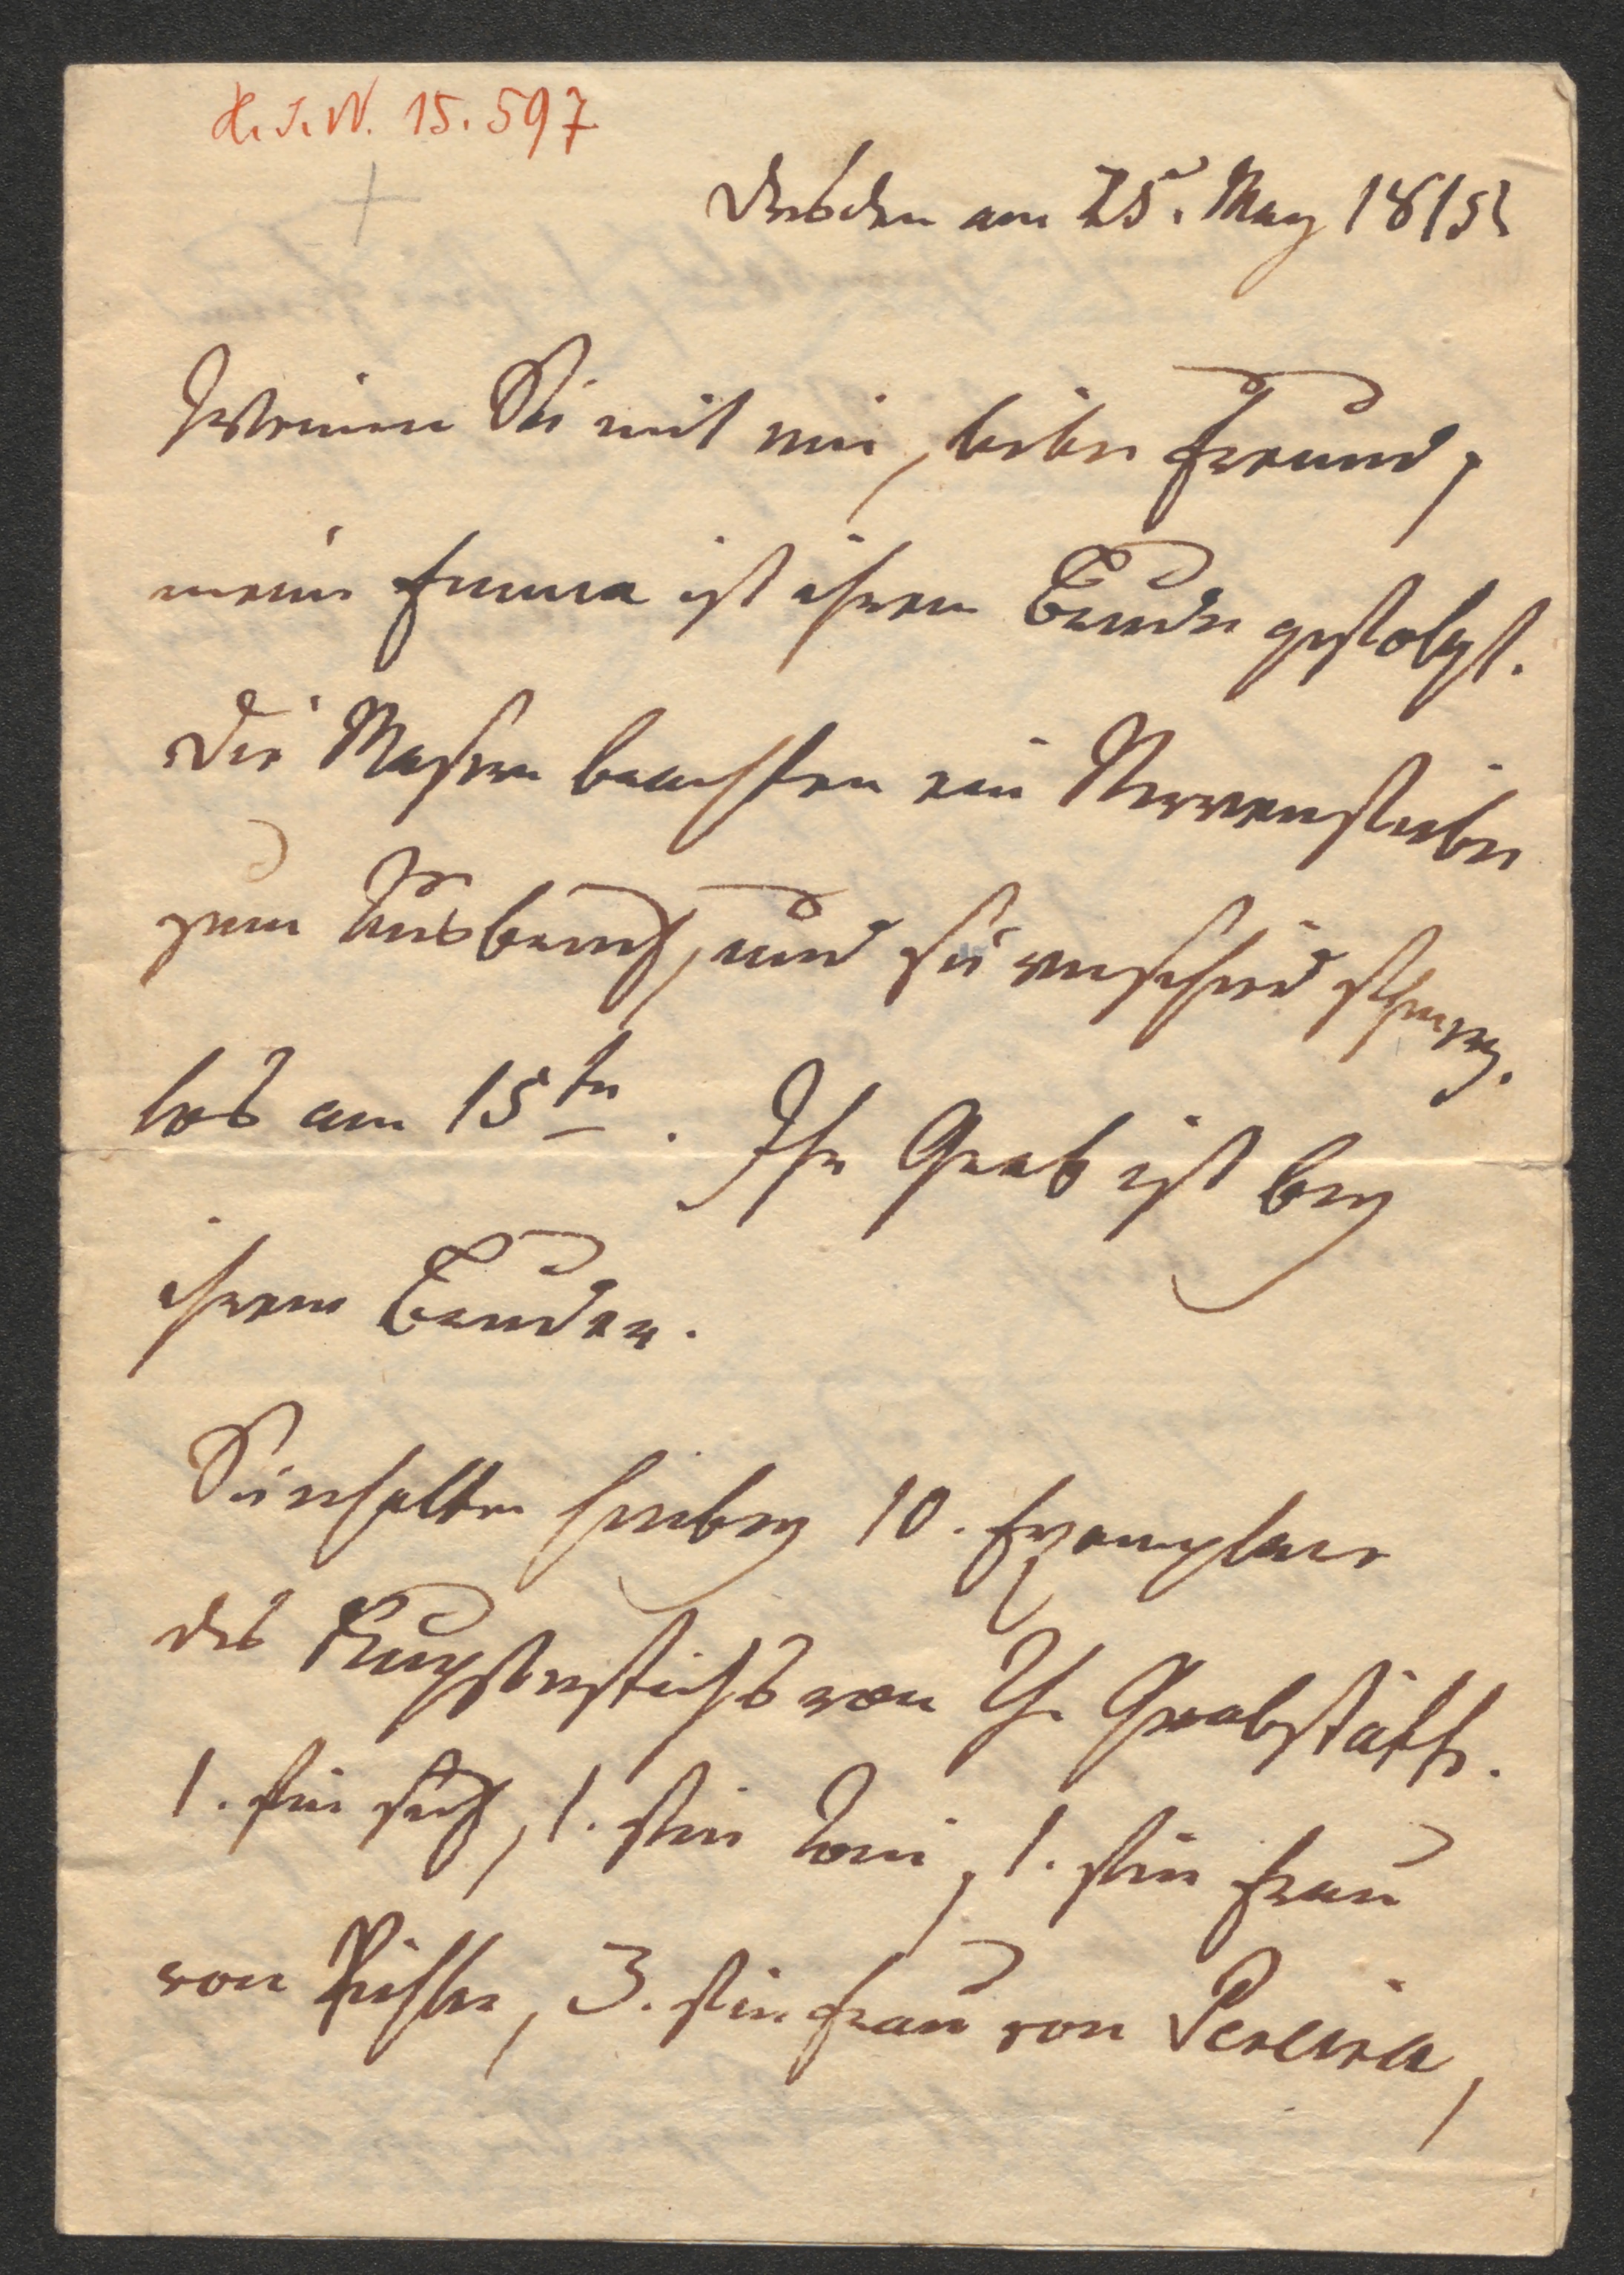 H.I.N. 15.597
Dresden am 25. May 1815
Weinen Sie mit mir, lieber Freund,
meine Emma ist ihrem Bruder gefolgt.
Die Masern brachten ein Nervenfieber
zum Ausbruch, und sie verschied schmerz-
los am 15ten. Ihr Grab ist bey
ihrem Bruder.
Sie erhalten hierbey 10. Exemplare
des Kupferstichs von Th. Grabstätte.
1. für sich, 1. für Toni, 1. für Frau
von Pichler, 3. für Frau von Pereira,